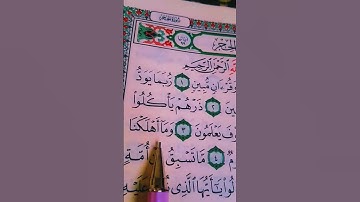 الحجر
الرحمن الرحيم
وقرءان مبين ١ ربما يود
ين ٢ ذرهم يأكلوا
ف يعلمون ٣ وما أهلكنا
وم ٤ ما تسبق من أمة
لوا يأيها الذي نزل عليه